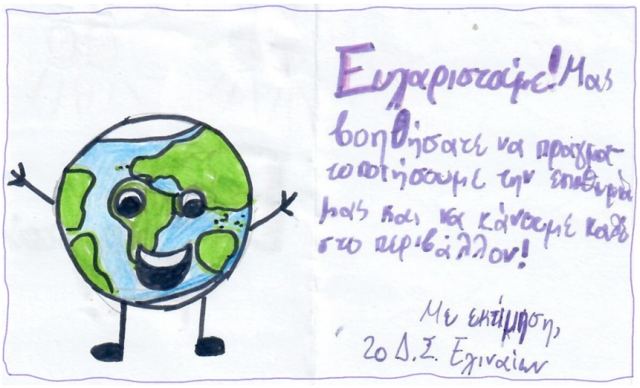 Ευχαριστούμε! Μας
βοηθήσατε να πραγμα-
τοποιήσουμε την επιθυμία
μας και να κάνουμε καλό
στο περιβάλλον!
Με εκτίμηση,
2ο Δ.Σ. Ελιναίων